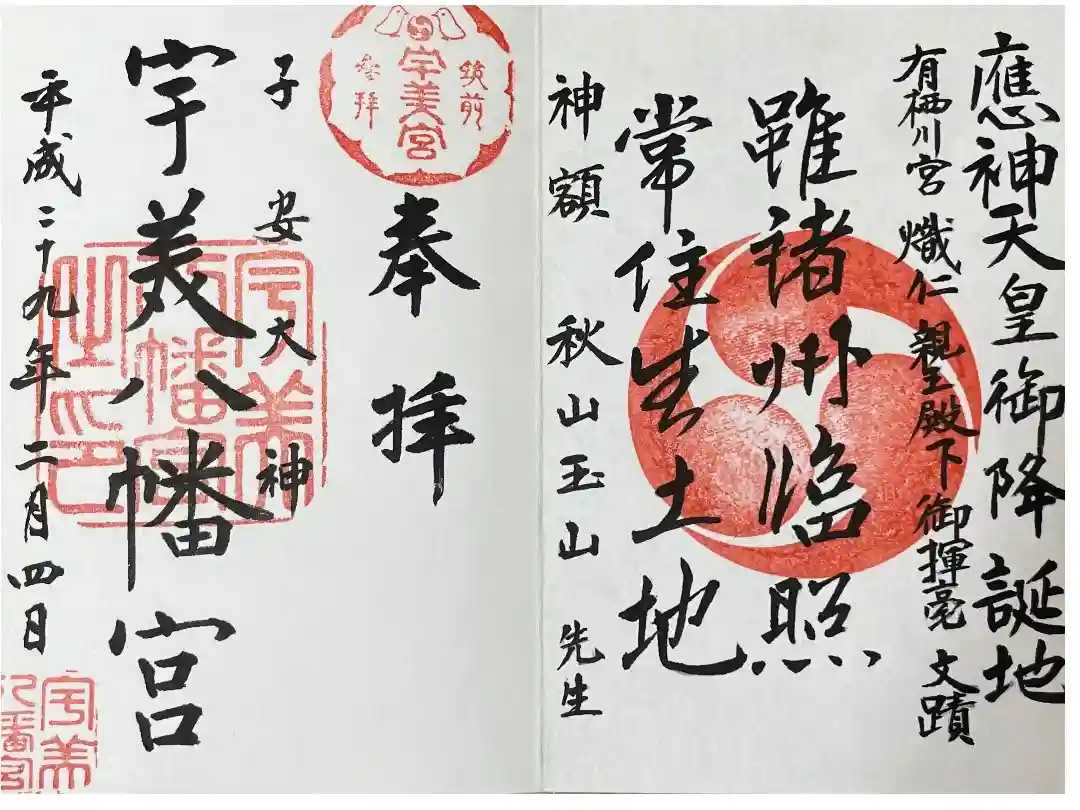 應神天皇御降誕地
有栖川宮 熾仁 親王殿下 御揮毫 文蹟
雖諸州臨照
常住生土地
神額 秋山玉山 先生
筑前
宇美宮
参拝
奉拝
子安大神
宇美八幡宮
平成二十九年 二月四日
宇美
八幡宮
之印
宇美
八幡宮